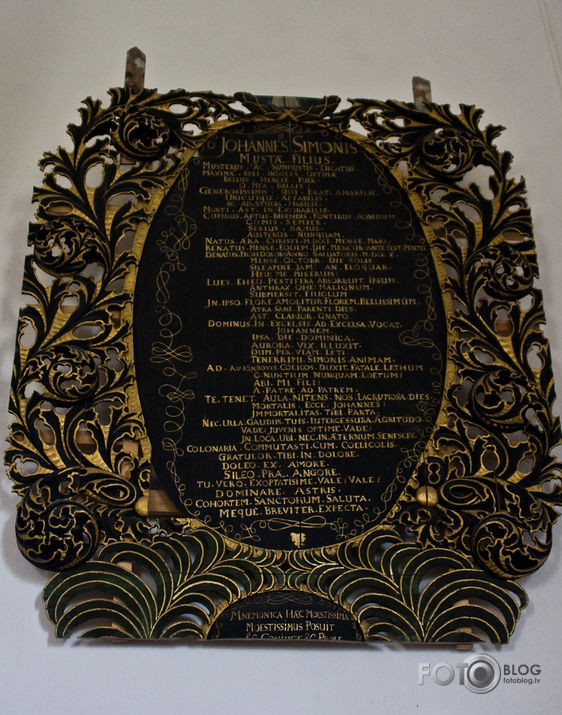 JOHANNES SIMONIS
MUSTÆ FILIUS
MUSTERUS AC SUMMUSTIS DICATUS
MAXIMA SPEI INDOLES OPTIMA
BELLUS HERCLE PUER
O MEA BELLIS
GENEROSISSIMIS QUI ERAT AMABILIS
UNICUIQUE AFFABILIS
AC ASTUTA HABILIS
MORTI AST IN-EXORABILIS
CUPIDUS APTUS BIBENDIS FONTIBUS AONIDUM
COMIS SEMPER
SERIUS SÆPIUS
AUSTERUS NUNQUAM
NATUS ÆRA CHRISTI M.DCCI MENSE MAJO
RENATUS MENSE EODEM DIE MERCUR ANTE FEST PENTC
DENATUS PROH DOLOR ANNO SALVATORIS M.DCC.X
MENSE OCTOBR DIE SOLIS
SILEAMNE JAM AN ELOQUAR
HEU ME MISERUM
LUES EHEU PESTIFERA ABSORBUIT IPSUM
ANTHRAX OHE MALIGNUM
SUBMERSIT FILIOLUM
JN IPSO FLORE AMOLITUR FLOREM BELLISSIMUM
ATRA SANE PARENTI DIES
AST CLARIOR GNATO
DOMINUS IN EXCELSIS AD EXCELSA VOCAT
JOHANNEM
IPSA DIE DOMINICA
AURORA VIX ILLUXIT
DUM PER VIAM LETI
TENERRIMI SIMONIS ANIMAM
AD COLICOS DUXIT FATALE LETHUM
O NUNTIUM NUNQUAM LÆTUM
ABI MI FILI
A PATRE AD PATREM
TE TENET AULA NITENS NOS LACRUMOSA DIES
MORTALIS ECCE JOHANNES
IMMORTALITAS TIBI PARTA
NEC ULLA GAUDIIS TUIS INTERCESSURA ÆGRITUDO
VADE JUVENIS OPTIME VADE
JN LOCA UBI NEC IN ÆTERNUM SENESCES
COLONARIA COMMUTASTI CUM COELICOLIS
GRATULOR TIBI IN DOLORE
DOLEO EX AMORE
SILEO PRÆ ANGORE
TU VERO EXOPTATISSIME VALE VALE
DOMINARE ASTRIS
COHORTEM SANCTORUM SALUTA
MEQUE BREVITER EXPECTA
MNEMONICA HÆC MOESTISSIMA
MOESTISSIMUS POSUIT
FOTO BLOG
fotoblog.lv